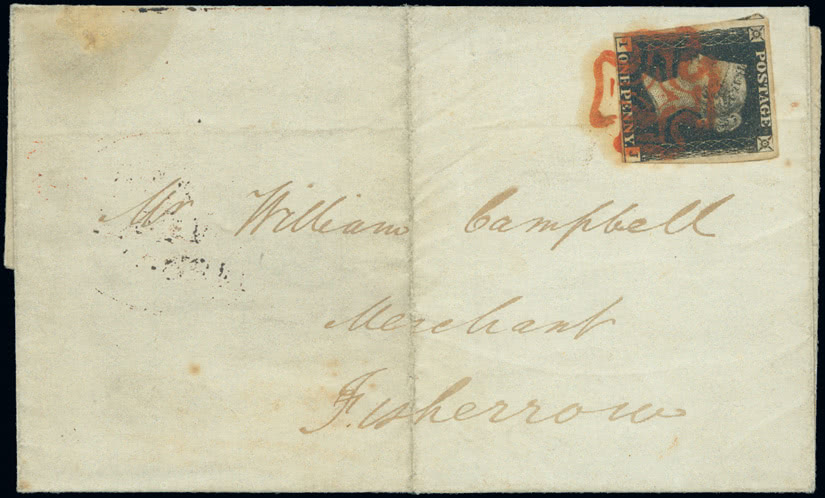 POSTAGE
ONE PENNY
I J
Mr William Campbell
Merchant
Fisherrow